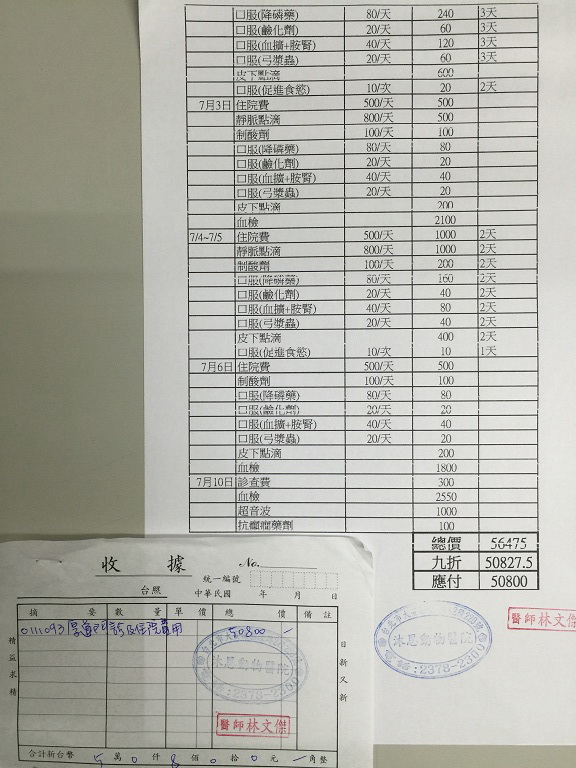 口服(降磷藥) 80/天 240 3天
口服(鹼化劑) 20/天 60 3天
口服(血擴+胺腎) 40/天 120 3天
口服(弓漿蟲) 20/天 60 3天
皮下點滴 600
口服(促進食慾) 10/次 20 2天
7月3日 住院費 500/天 500
靜脈點滴 800/天 500
制酸劑 100/天 100
口服(降磷藥) 80/天 80
口服(鹼化劑) 20/天 20
口服(血擴+胺腎) 40/天 40
口服(弓漿蟲) 20/天 20
皮下點滴 200
血檢 2100
7/4~7/5 住院費 500/天 1000 2天
靜脈點滴 800/天 1000 2天
制酸劑 100/天 200 2天
口服(降磷藥) 80/天 160 2天
口服(鹼化劑) 20/天 40 2天
口服(血擴+胺腎) 40/天 80 2天
口服(弓漿蟲) 20/天 40 2天
皮下點滴 400 2天
口服(促進食慾) 10/次 10 1天
7月6日 住院費 500/天 500
制酸劑 100/天 100
口服(降磷藥) 80/天 80
口服(鹼化劑) 20/天 20
口服(血擴+胺腎) 40/天 40
口服(弓漿蟲) 20/天 20
皮下點滴 200
血檢 1800
7月10日 診查費 300
血檢 2550
超音波 1000
抗癲癇藥劑 100
總價 56475
九折 50827.5
應付 50800
沐恩動物醫院
電話:2378-2350
醫師林文傑
收據 No.
統一編號
台照 中華民國 年 月 日
摘要 數量 單價 總價 備註
50800
沐恩動物醫院
電話:2378-2350
醫師林文傑
精益求精
日新又新
合計新台幣 5 萬 0 仟 8 佰 0 拾 0 元 角整